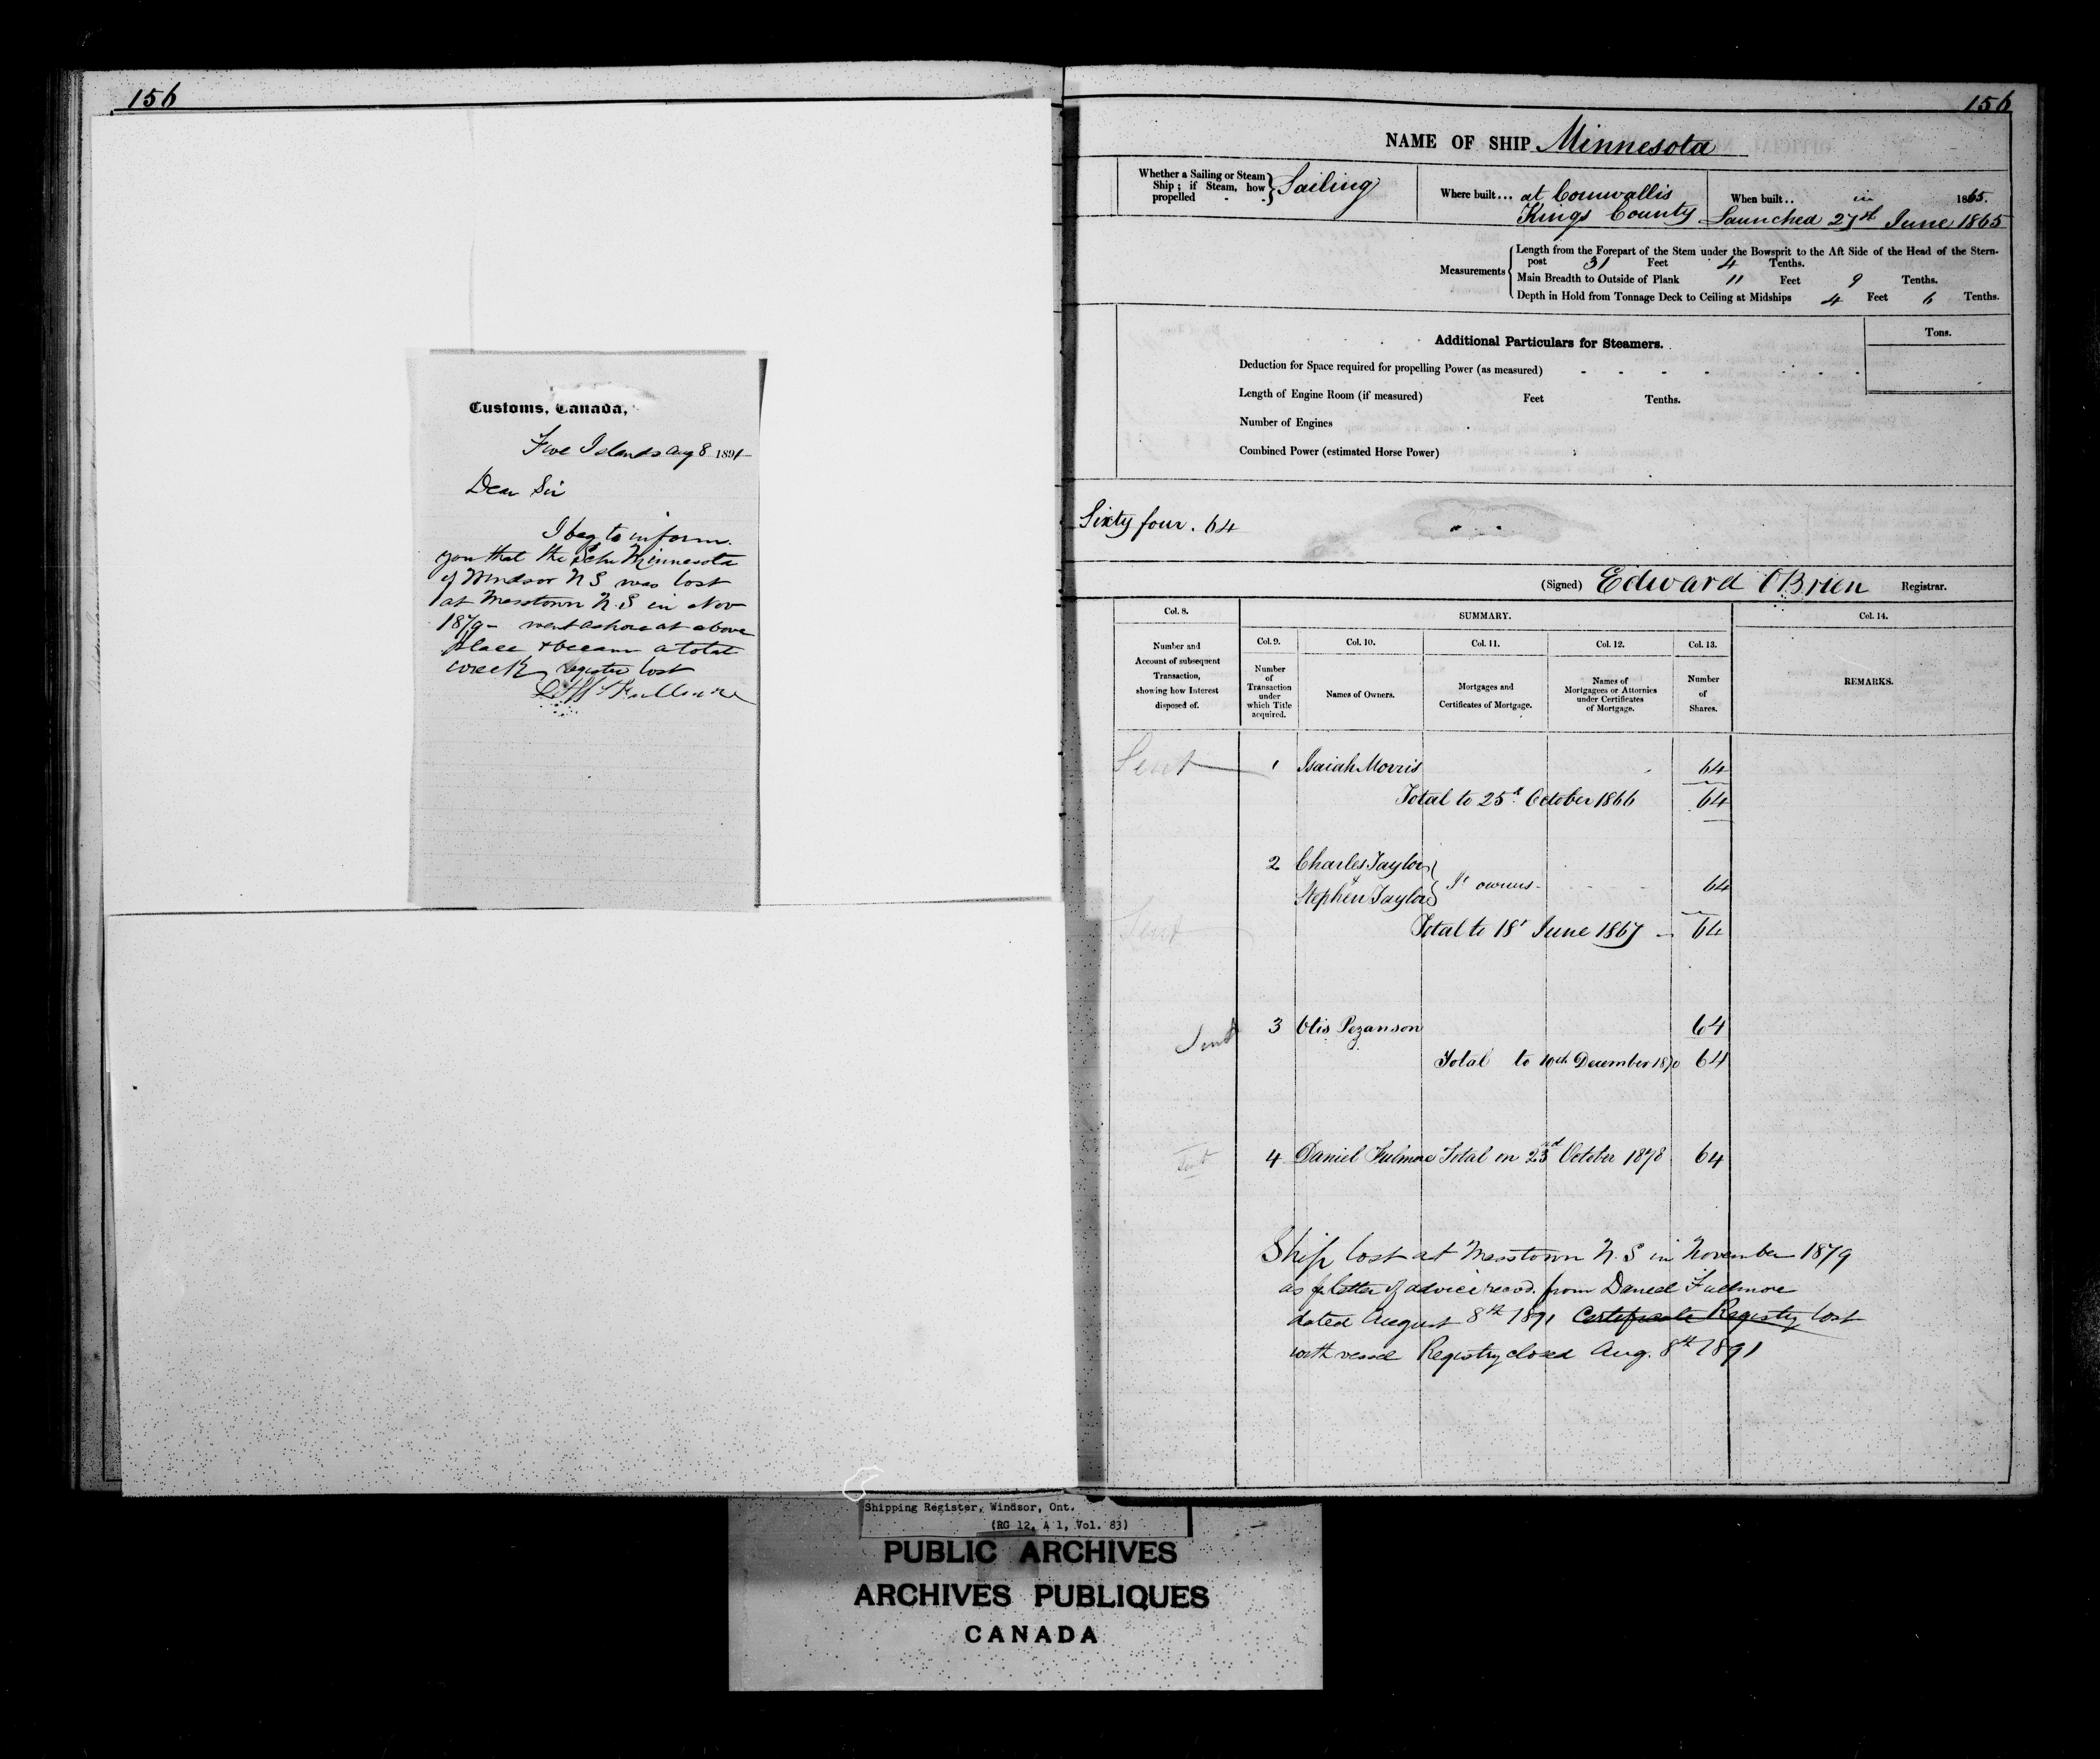 156
Customs, Canada,
Five Islands Aug 8 1891
Dear Sir
I beg to inform
you that the Schr Minnesota
of Windsor N S was lost
at Masstown N.S in Nov
1879 - went ashore at above
place & became a total
wreck, register lost
Fullmore
156
NAME OF SHIP Minnesota
Whether a Sailing or Steam Ship; if Steam, how propelled - - Sailing
Where built... at Cornwallis Kings County
When built.. in 1865. Launched 27th June 1865
Measurements
Length from the Forepart of the Stem under the Bowsprit to the Aft Side of the Head of the Stern-
post 31 Feet 4 Tenths.
Main Breadth to Outside of Plank 11 Feet 9 Tenths.
Depth in Hold from Tonnage Deck to Ceiling at Midships 4 Feet 6 Tenths.
Additional Particulars for Steamers.
Tons.
Deduction for Space required for propelling Power (as measured)
Length of Engine Room (if measured) Feet Tenths.
Number of Engines
Combined Power (estimated Horse Power)
Sixty four. 64
(Signed) Edward OBrien Registrar.
Col. 8.
Number and
Account of subsequent
Transaction,
showing how Interest
disposed of.
SUMMARY.
Col. 9.
Number
of
Transaction
under
which Title
acquired.
Col. 10.
Names of Owners.
Col. 11.
Mortgages and
Certificates of Mortgage.
Col. 12.
Names of
Mortgagees or Attornies
under Certificates
of Mortgage.
Col. 13.
Number
of
Shares.
Col. 14.
REMARKS.
Sent 1 Isaiah Morris 64
Total to 25th October 1866 64
2 Charles Taylor
& Stephen Taylor Jt owners - 64
Sent Total to 18th June 1867 - 64
Sent 3 Otis Pezanson 64
Total to 10th December 1870 64
Sent 4 Daniel Fulmore Total on 23rd October 1878 64
Ship lost at Masstown N.S in November 1879
as pr letter of advice recvd. from Daniel Fullmore
dated August 8th 1891 Certificate Registry lost
with vessel Registry closed Aug. 8th 1891
Shipping Register, Windsor, Ont.
(RG 12, A 1, Vol. 83)
PUBLIC ARCHIVES
ARCHIVES PUBLIQUES
CANADA